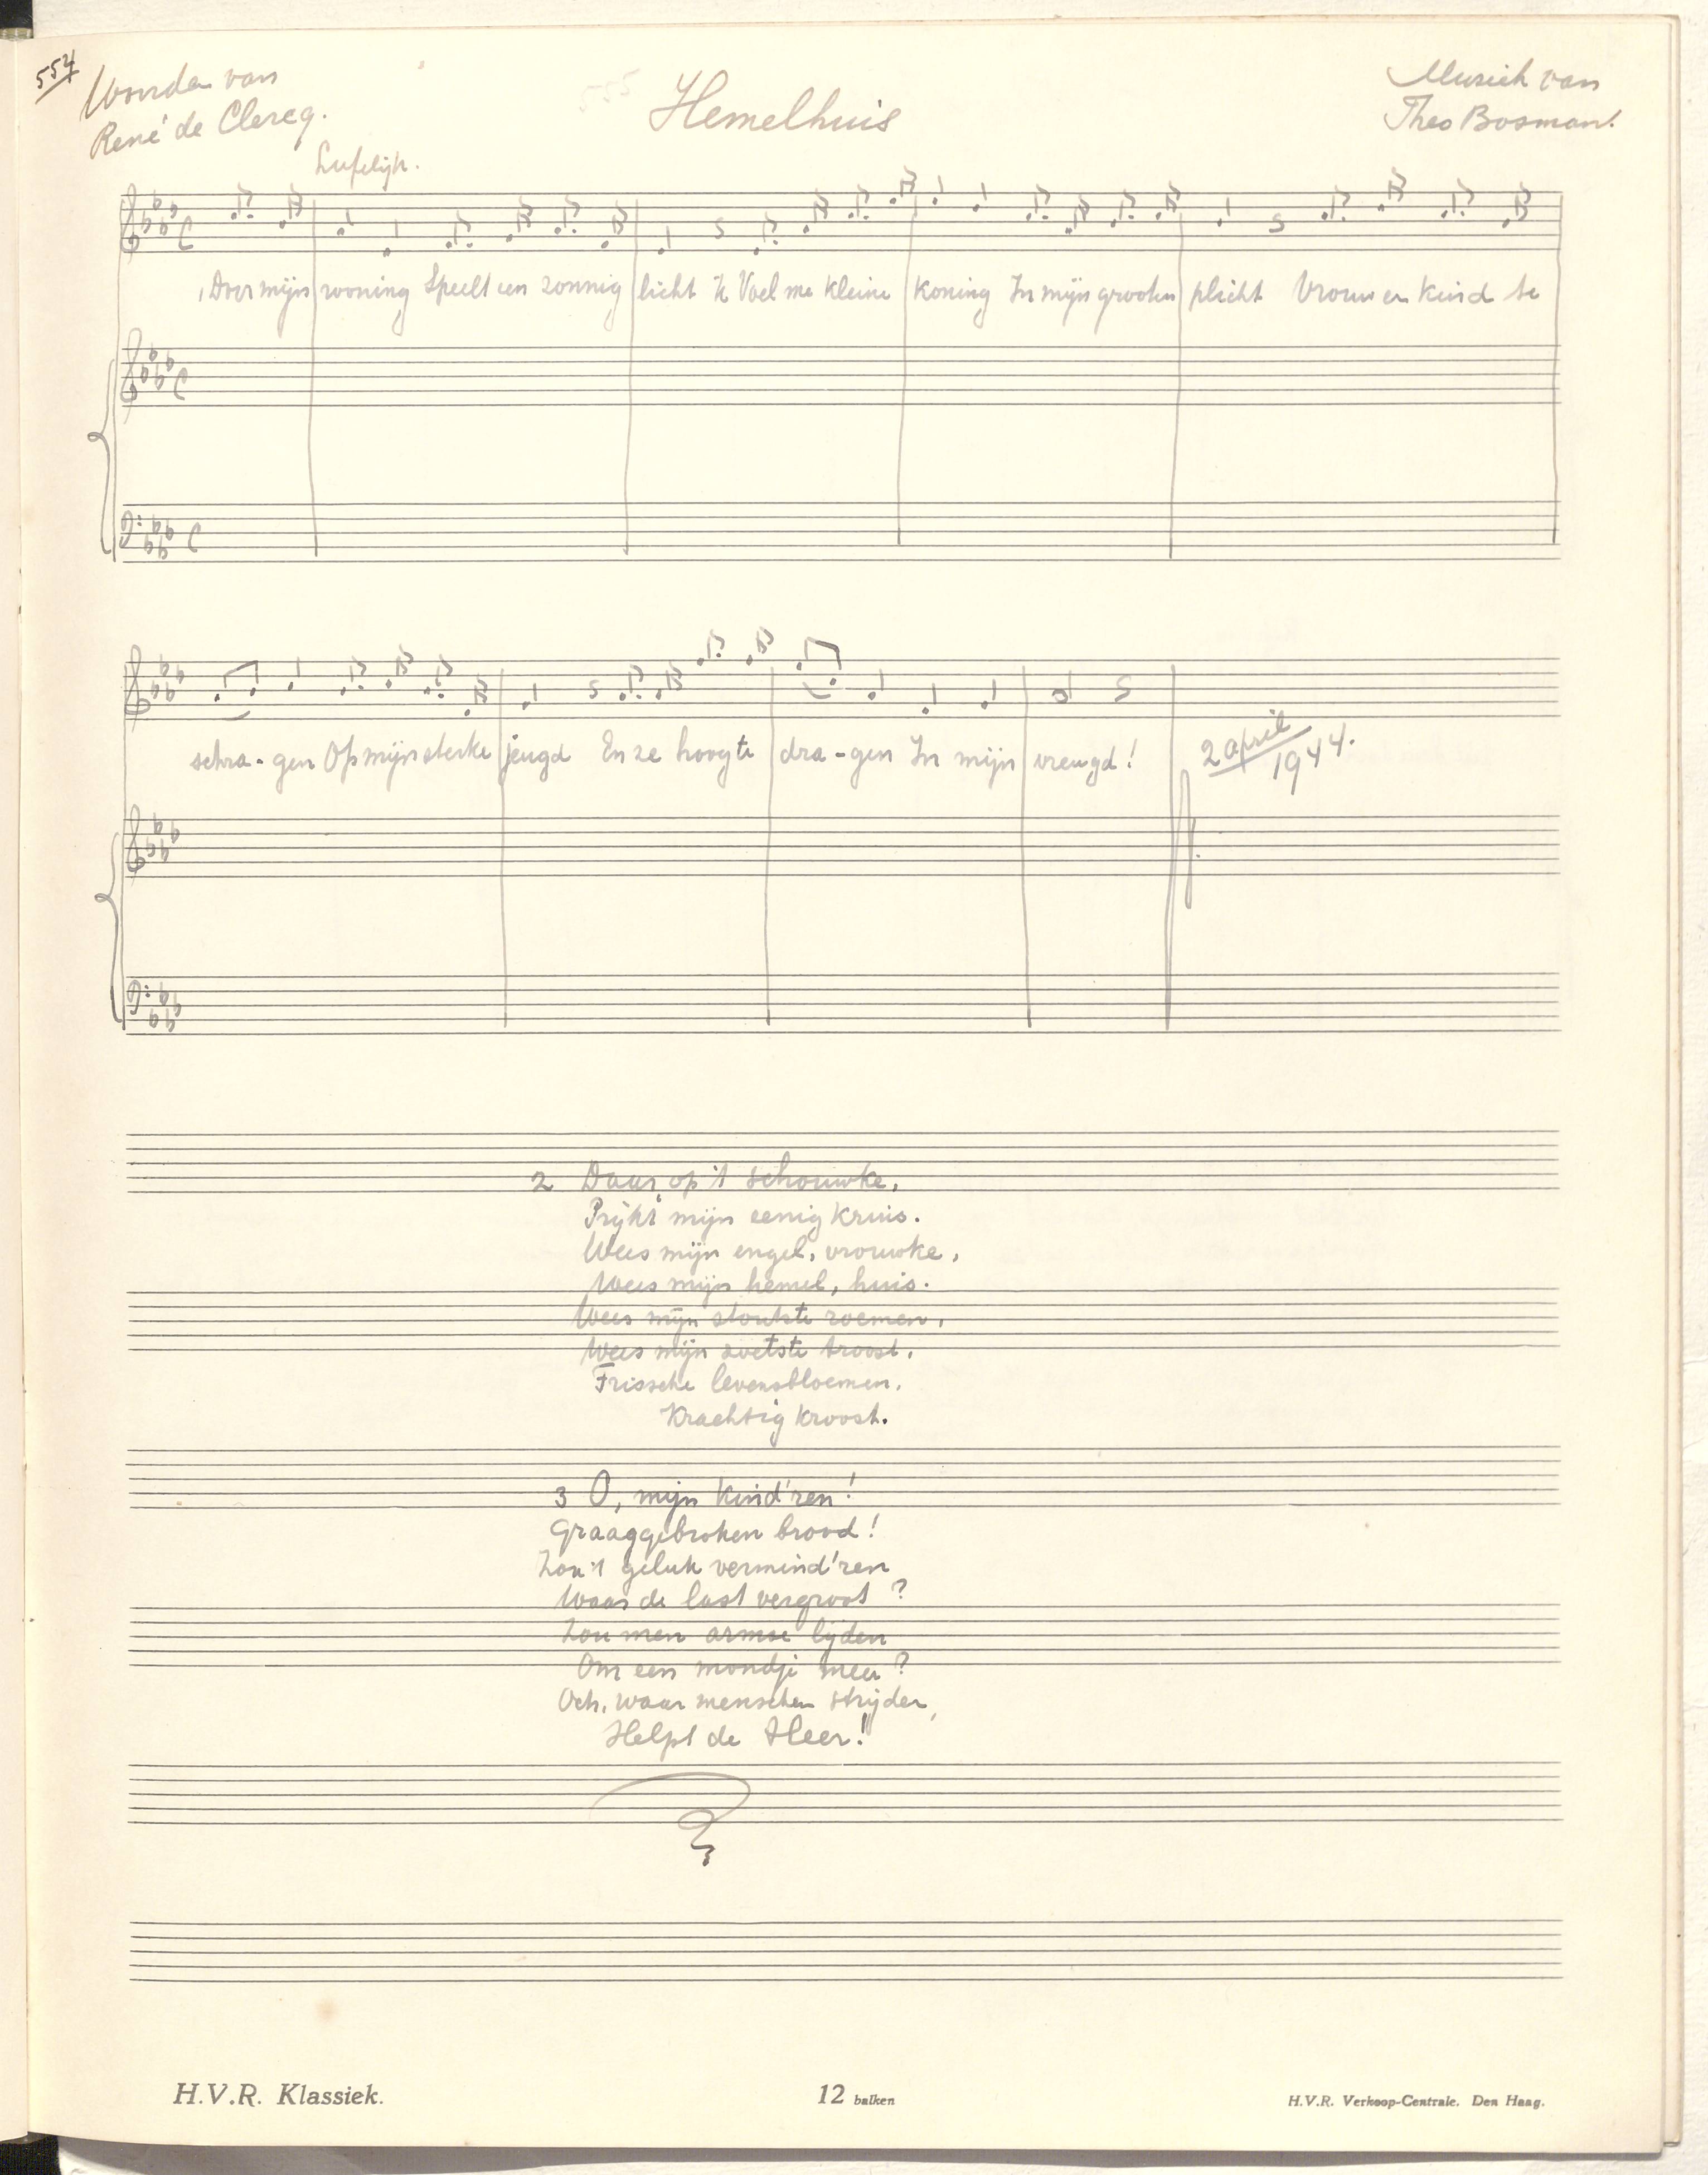 554
Woorden van
René de Clercq.
555
Hemelhuis
Muziek van
Theo Bosman.
Liefelijk.
1 Door mijn woning Speelt een zonnig licht 'k Voel me kleine koning In mijn grooten plicht Vrouw en kind te
schra-gen Op mijn sterke jeugd En ze hoog te dra-gen In mijn vreugd!
2 april
1944.
2 Daar op 't schouwke,
Prijkt mijn eenig kruis.
Wees mijn engel, vrouwke,
Wees mijn hemel, huis.
Wees mijn stoutste roemen,
Wees mijn zoetste troost,
Frissche levensbloemen,
Krachtig kroost.
3 O, mijn kind'ren!
Graaggebroken brood!
Zou 't geluk vermind'ren
Waar de last vergroot?
Zou men armoe lijden
Om een mondje meer?
Och, waar menschen strijden,
Helpt de Heer!
H.V.R. Klassiek.
12 balken
H.V.R. Verkoop-Centrale. Den Haag.